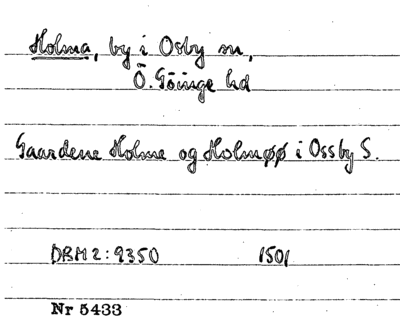 Holma, by i Osby sn,
Ö. Göinge hd
Gaardene Holme og Holmøø i Ossby S.
DRM 2:9350 1501
Nr 5433